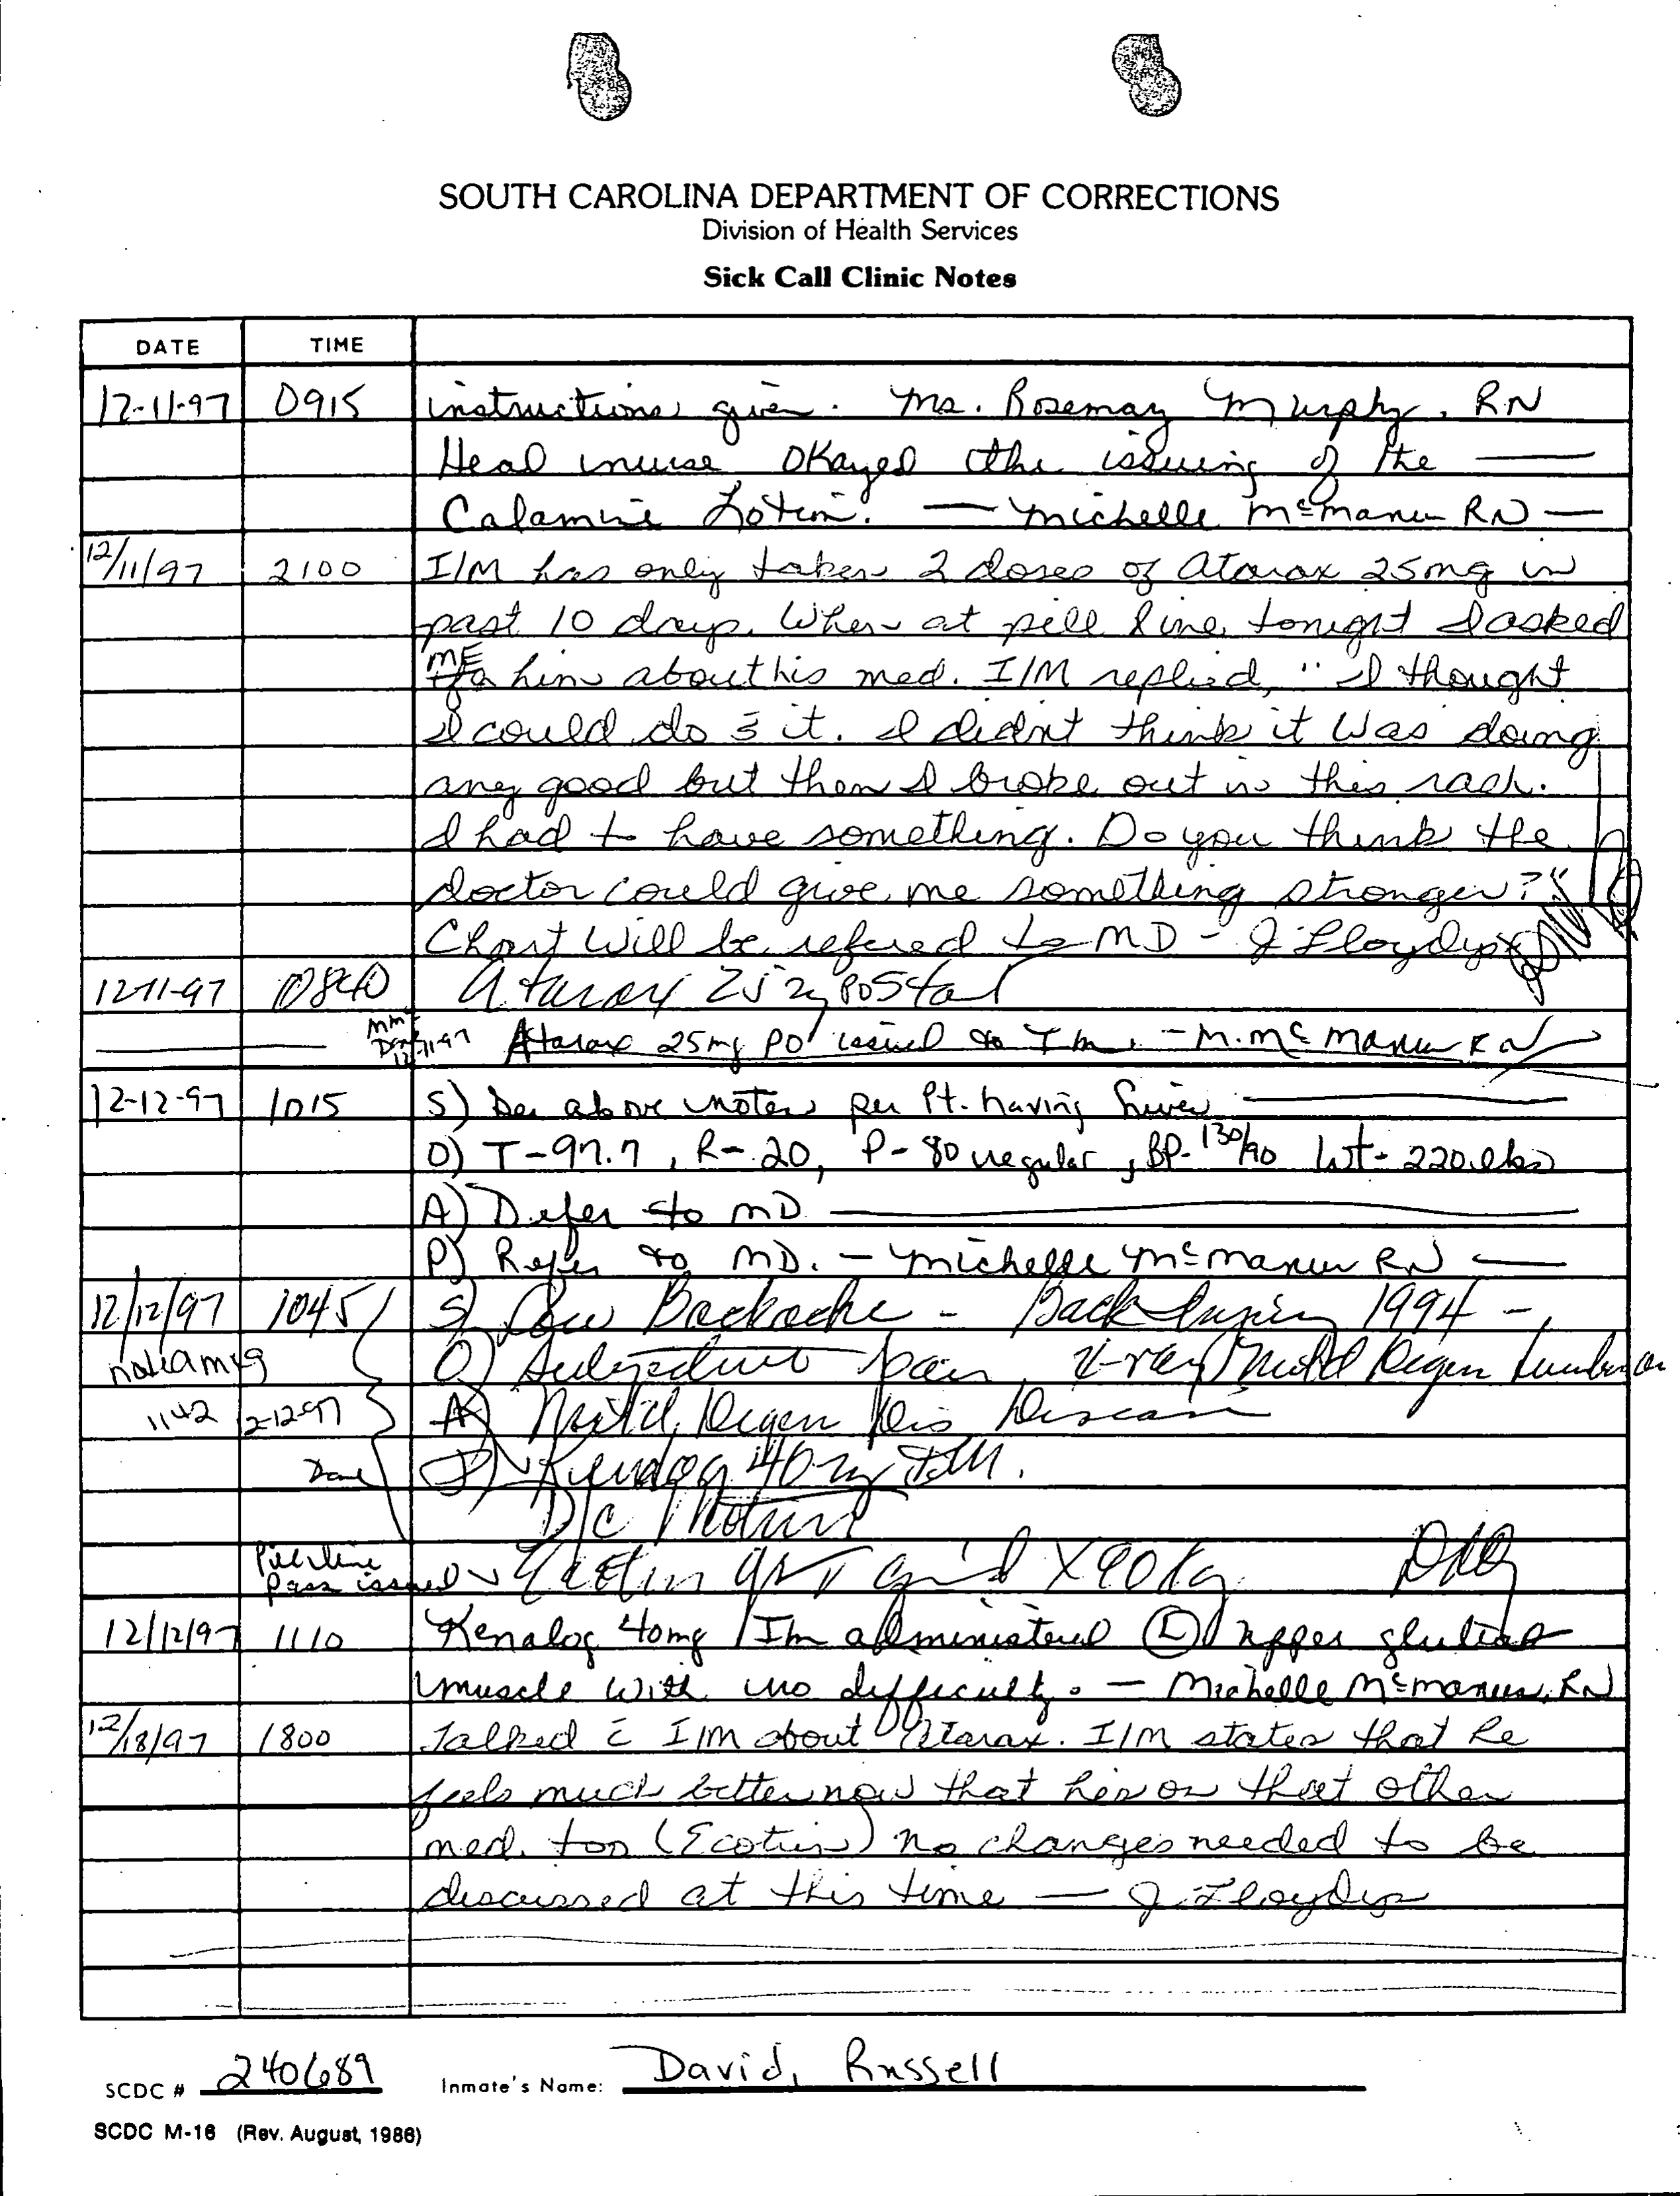 SOUTH CAROLINA DEPARTMENT OF CORRECTIONS
Division of Health Services
Sick Call Clinic Notes
DATE TIME
12-11-97 0915 instructions given. Ms. Rosemary Murphy, RN
Head nurse Okayed the issuing of the
Calamine Lotion. — Michelle McManus RN —
12/11/97 2100 I/M has only taken 2 doses of Atarax 25mg in
past 10 days. When at pill line tonight I asked
ME
him about his med. I/M replied, "I thought
I could do s̄ it. I didn't think it was doing
any good but then I broke out in this rash.
I had to have something. Do you think the
doctor could give me something stronger?"
Chart will be refered to MD - J Floyd
12-11-97 0840 Atarax 25 mg PO Stat
MM 12-11-97 Atarax 25mg PO issued to I/m. - M. McManus RN
12-12-97 1015 S) See above notes per Pt. having hives
O) T-97.7, R-20, P-80 regular, BP-130/90 Wt- 220 lbs
A) Defer to MD
P) Refer to MD. - Michelle McManus RN —
12/12/97 1045 S) Low Backache - Back Injury 1994 -
noted O) Subjective pain X-ray Mild Degen
1142 12-12-97 A) Mild Degen Dis Disease
Done P) Kenalog 40 mg IM.
D/C Motrin
Pill line
pass issued Ecotrin qid X 90
12/12/97 1110 Kenalog 40mg IM administered (L) upper gluteal
muscle with no difficulty. - Michelle McManus, RN
12/18/97 1800 Talked c̄ I/M about Atarax. I/M states that he
feels much better now that he's on that other
med. too (Ecotrin) No changes needed to be
discussed at this time — J Floyd
SCDC # 240689 Inmate's Name: David, Russell
SCDC M-16 (Rev. August, 1986)